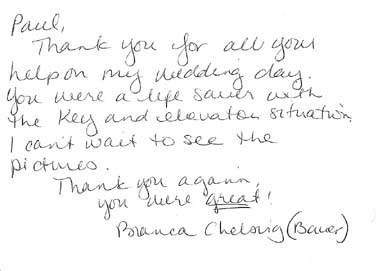 Paul,
Thank you for all your
help on my wedding day.
You were a life saver with
the key and elevator situation,
I can't wait to see the
pictures.
Thank you again,
you were great!
Bianca (Bauer)